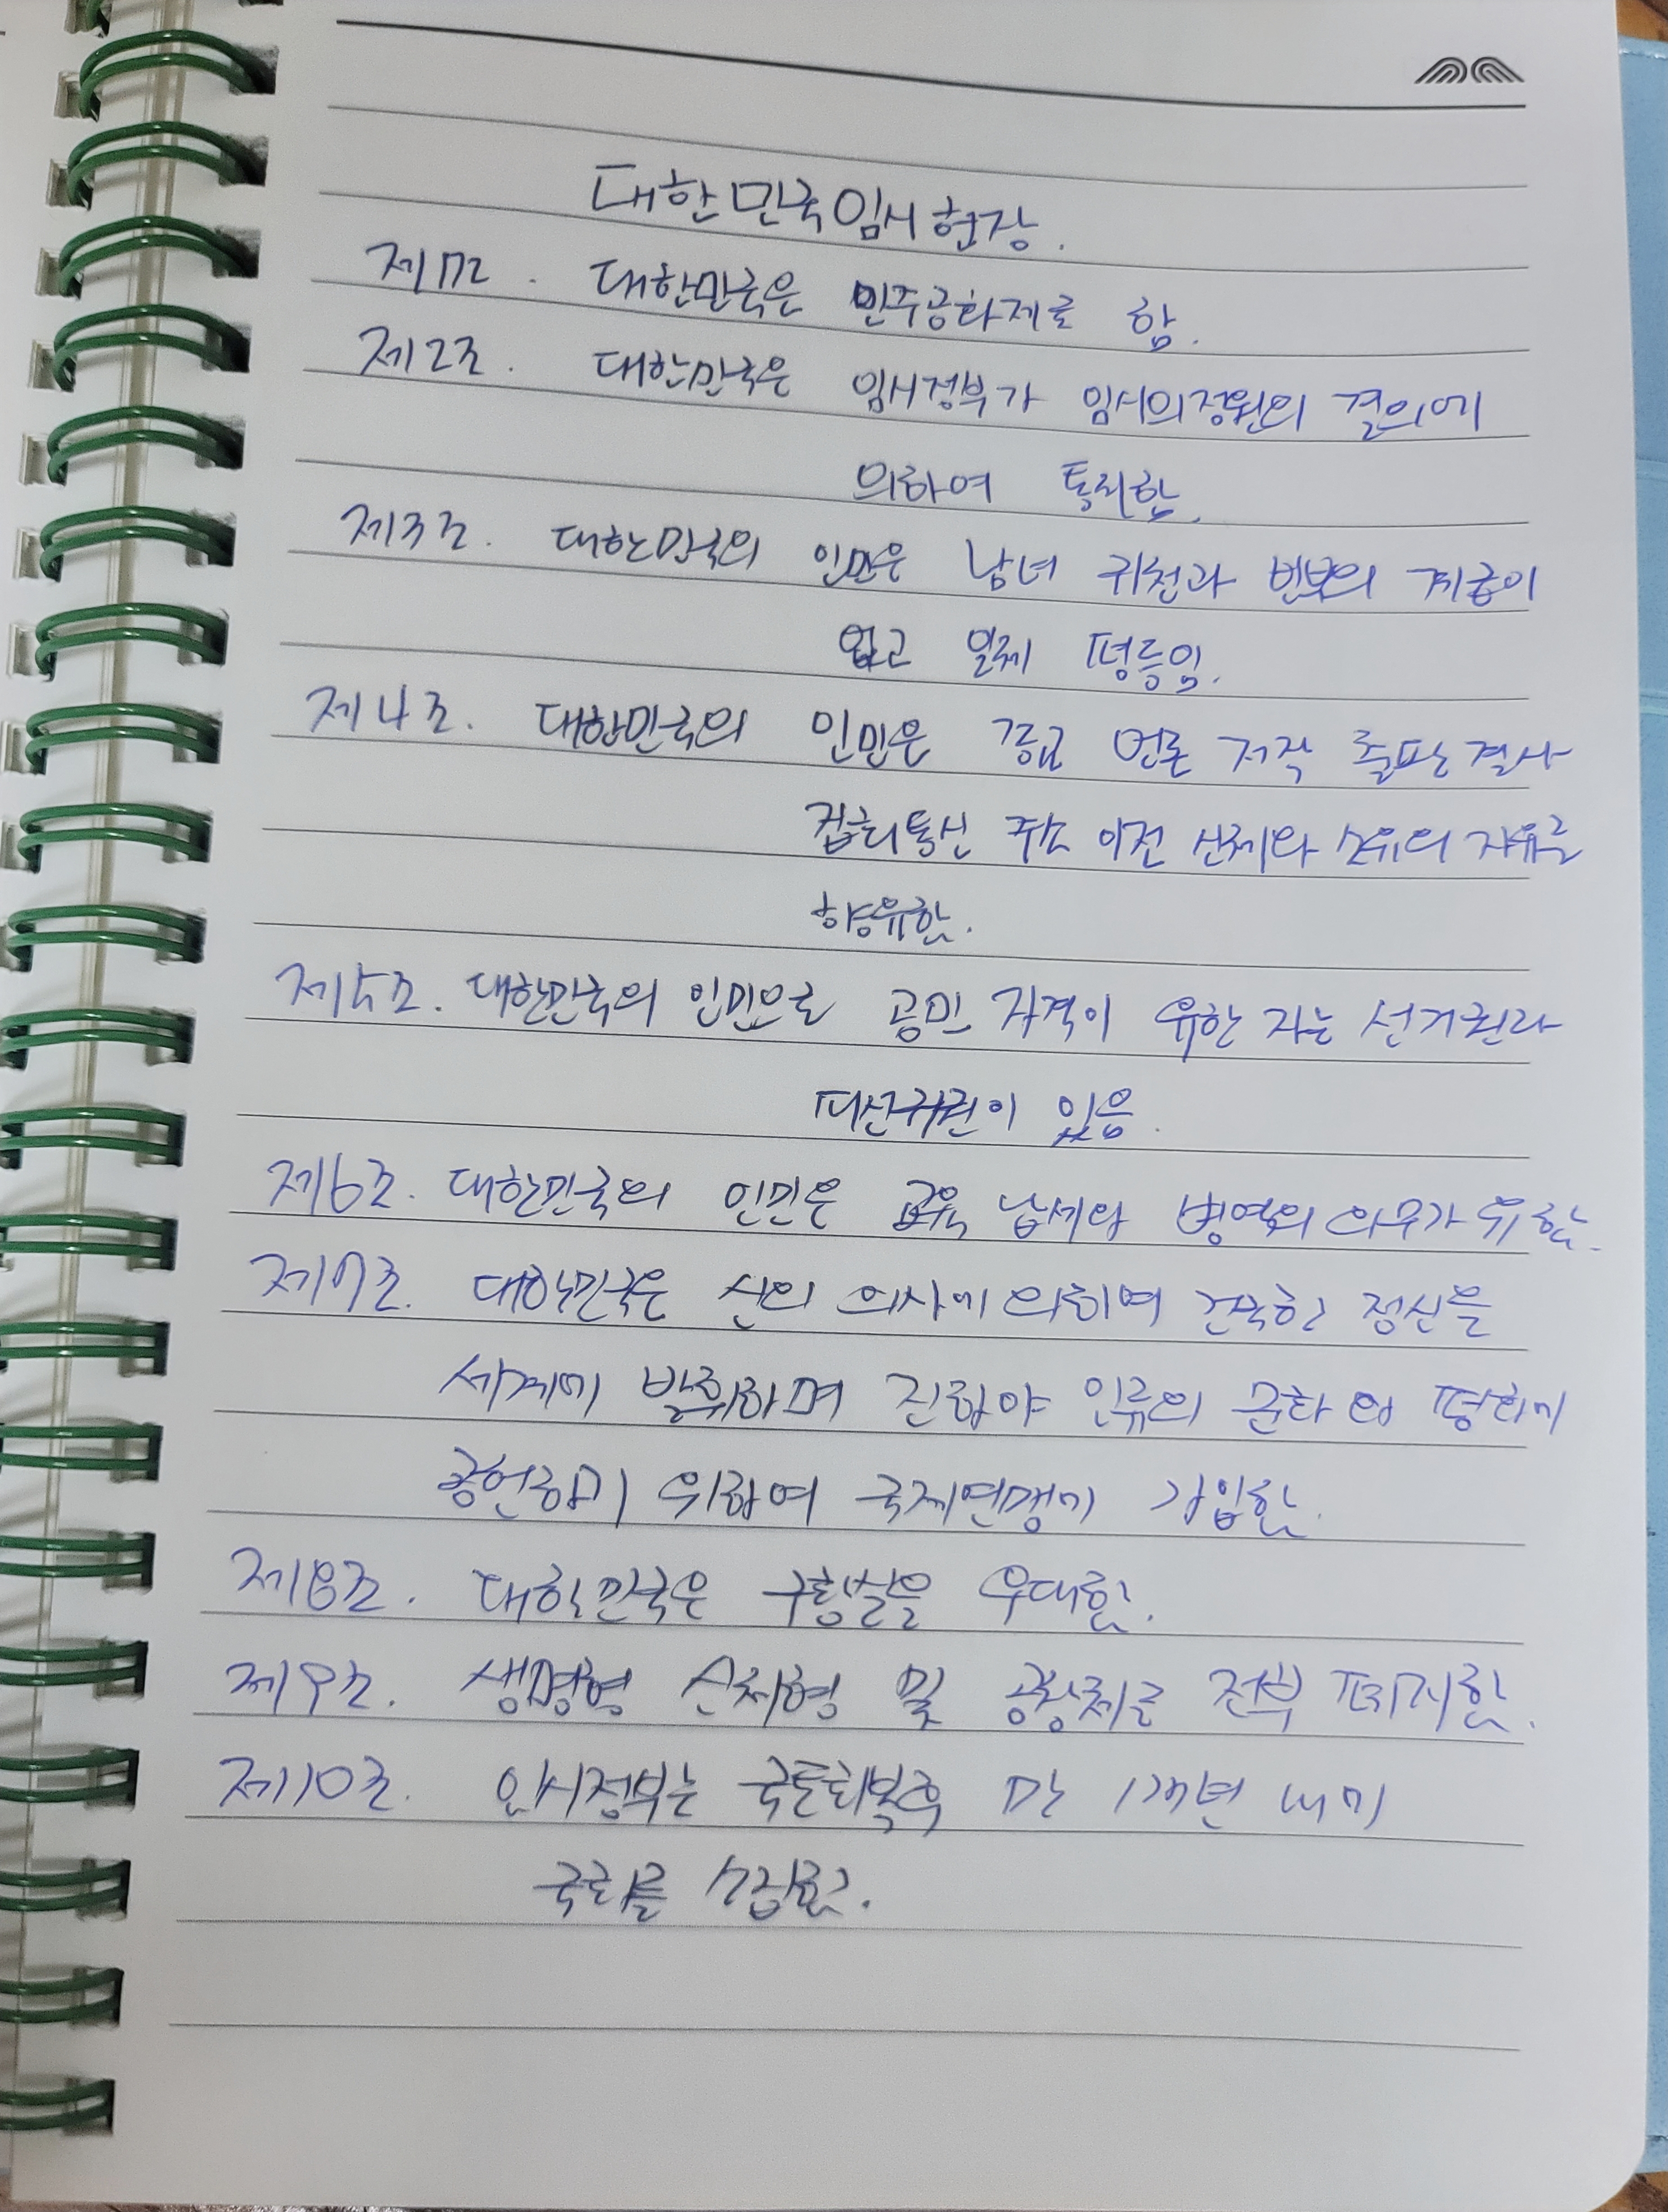 대한민국임시헌장.
제1조. 대한민국은 민주공화제로 함.
제2조. 대한민국은 임시정부가 임시의정원의 결의에
의하여 통치함.
제3조. 대한민국의 인민은 남녀 귀천과 빈부의 계급이
없고 일체 평등임.
제4조. 대한민국의 인민은 종교 언론 저작 출판 결사
집회 통신 주소 이전 신체와 소유의 자유를
향유함.
제5조. 대한민국의 인민으로 공민 자격이 유한 자는 선거권과
피선거권이 있음.
제6조. 대한민국의 인민은 교육 납세와 병역의 의무가 유함.
제7조. 대한민국은 신의 의사에 의하여 건국한 정신을
세계에 발휘하며 진하야 인류의 문화 와 평화에
공헌하기 위하여 국제연맹에 가입함.
제8조. 대한민국은 구황실을 우대함.
제9조. 생명형 신체형 및 공창제를 전부 폐지함.
제10조. 임시정부는 국토회복후 만 1개년 내에
국회를 소집함.